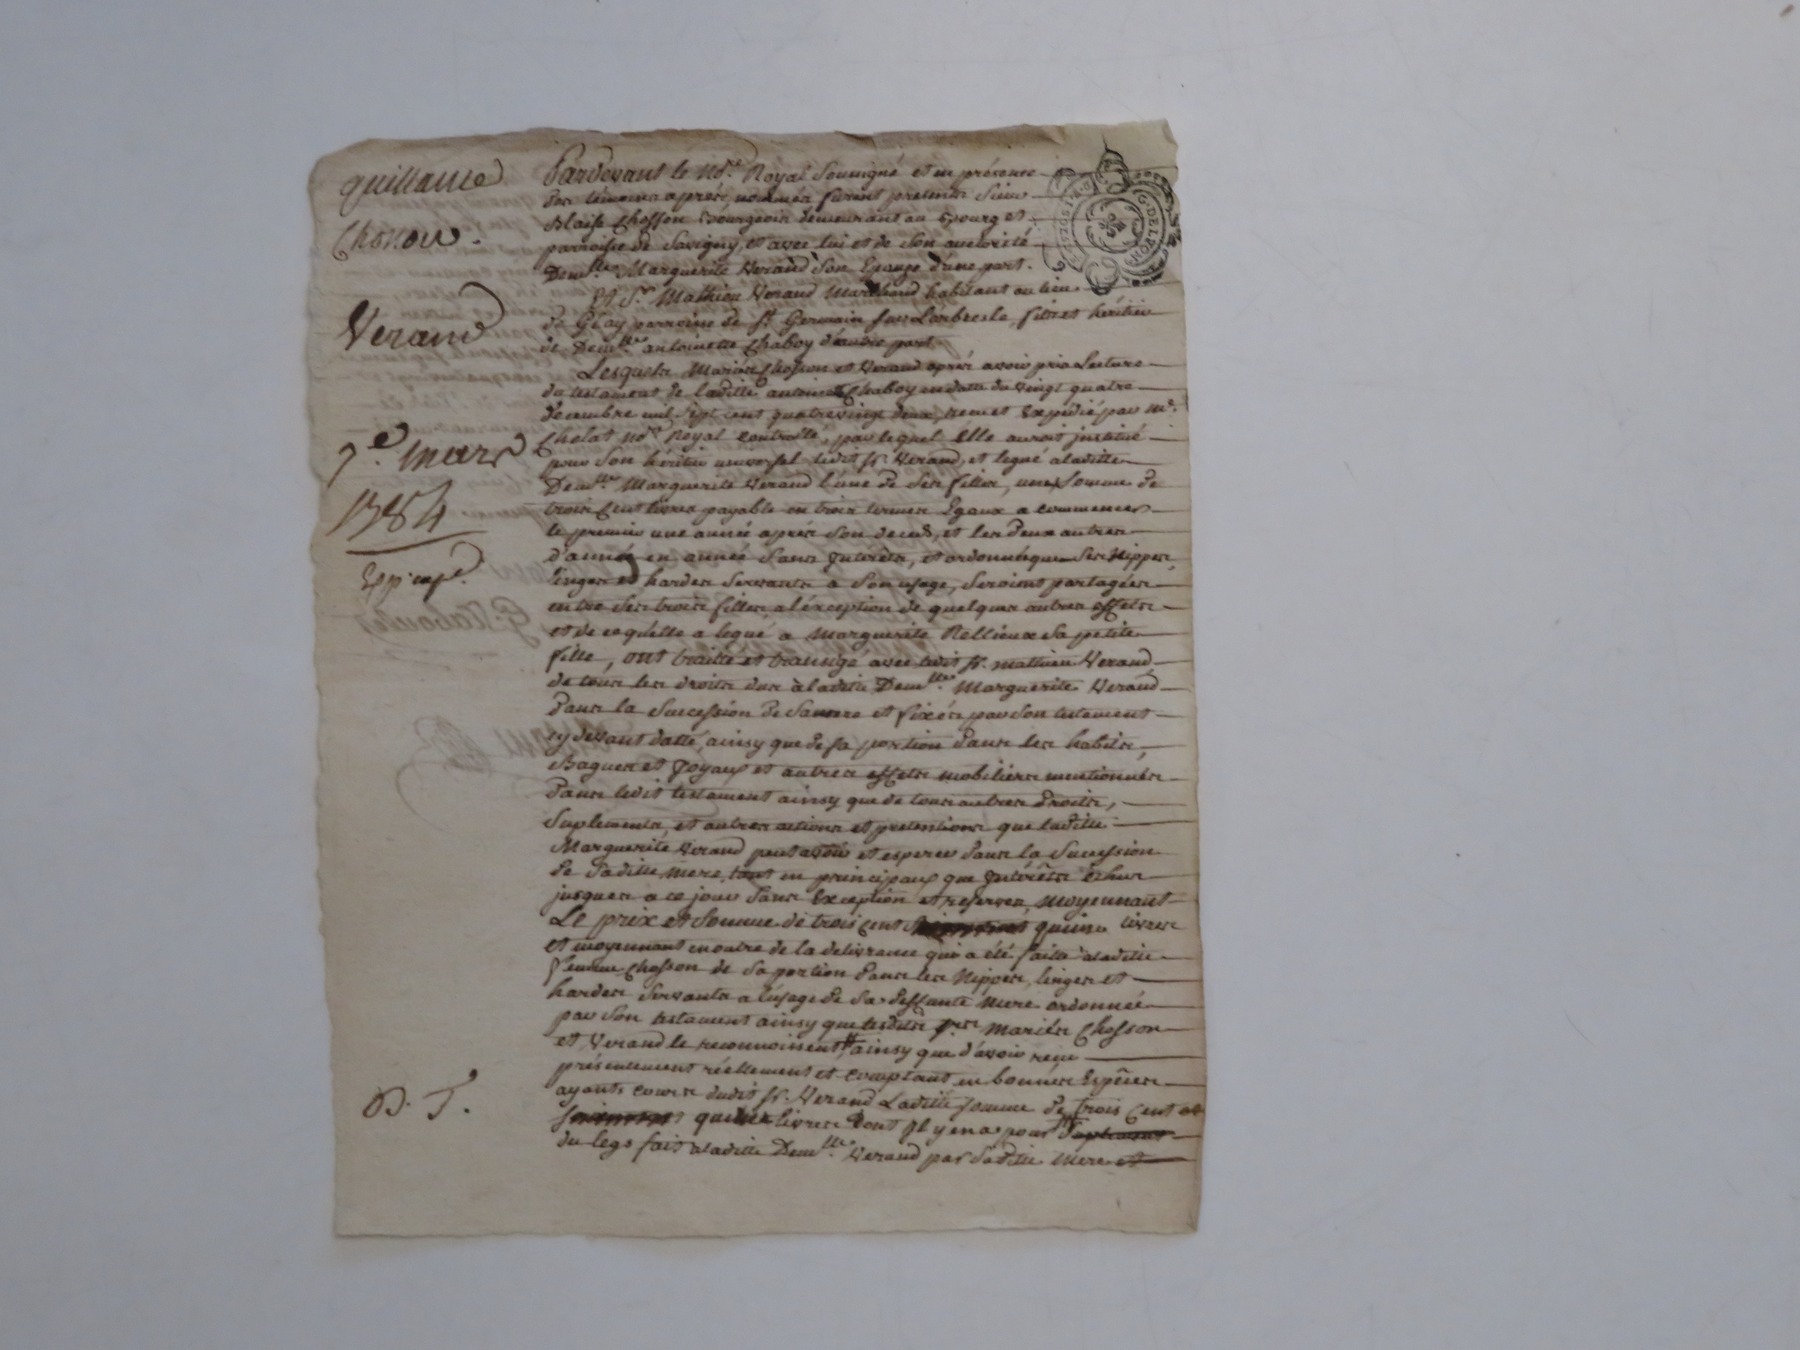 quittance
Chosson.
Verand
7.e mars
1784
Exp. en p.
B. T.
Pardevant le No.re Royal Soussigné et en présence
des témoins aprés nommés furent presents Sieur
Blaise Chosson Bourgeois demeurant au Bourg et
parroisse de Savigny, et avec lui et de Son autorité
Dem.lle Marguerite Verand Son Epouse d'une part.
Et S.r Mathieu Verand Marchand habitant au lieu
de Glay parroisse de S.t Germain Sur Larbresle, fils et héritier
de Dem.lle antoinette Chaboy d'autre part.
Lesquels Mariés Chosson et Verand aprés avoir pris Lecture
du testament de laditte antoinette Chaboy en datte du Vingt quatre
decembre mil Sept cent quatrevingt deux, reçu et Expédié par M.e
Cholat No.re Royal controllé, par lequel Elle auroit institué
pour Son héritier universel ledit Sr. Verand, et legué a laditte
Dem.lle Marguerite Verand l'une de Ses filles, une Somme de
trois Cent livres payable en trois termes Egaux a commencer
le premier une année aprés Son decés, et les deux autres
d'année en année Sans Interets, et ordonné que Ses Nippes,
linges et hardes Servants a Son usage, Seroient partagées
entre Ses trois filles a l'éxception de quelques autres effets
et de ce qu'elle a legué a Marguerite Rellieux Sa petite
fille, ont traitté et transigé avec ledit Sr. Mathieu Verand
de tous les droits dus à laditte Dem.lle Marguerite Verand
dans la Succession de Sa mere et fixés par Son testament
cy devant datté, ainsy que de Sa portion dans les habits,
Bagues et Joyaux et autres effets mobiliers mentionnés
dans ledit testament ainsy que de tous autres droits,
Suplements, et autres actions et pretentions que laditte
Marguerite Verand peut avoir et esperer dans la Succession
de Saditte mere, tant en principaux que Intérêts échus
jusques a ce jour Sans Exception et reserves, moyennant
Le prix et Somme de trois Cent quinze livres
et moyennant en outre de la delivrance qui a été faitte à laditte
femme Chosson de Sa portion dans les Nippes, linges et
hardes Servants a l'usage de Sa deffunte Mere ordonnée
par Son testament ainsy que lesdits Mariés Chosson
et Verand le reconnoissent, ainsy que d'avoir reçu
présentement réellement et comptant en bonnes Espéces
ayants cours dudit Sr. Verand Laditte Somme de trois Cent et
quinze livres dont Il y en a pour
du legs fait a laditte Dem.lle Verand par Saditte Mere et